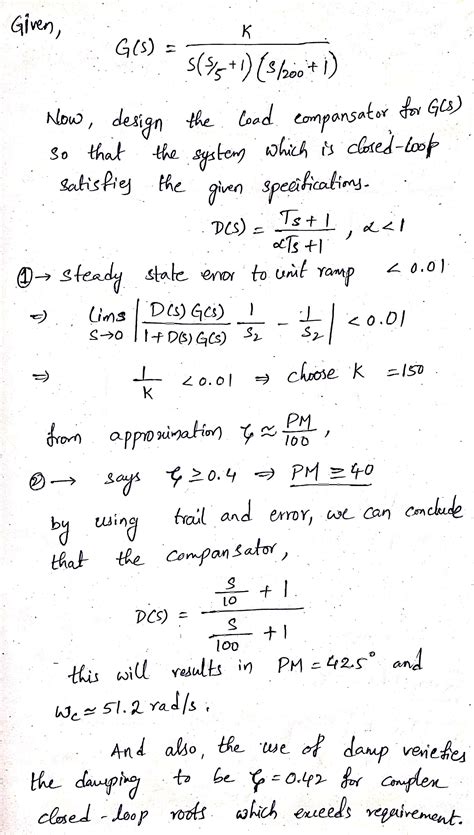 Given,
G(s) = K / s(s/5 + 1) (s/200 + 1)
Now, design the load compansator for G(s)
so that the system which is closed-loop
satisfies the given specifications.
D(s) = Ts + 1 / αTs + 1 , α < 1
① → steady state error to unit ramp < 0.01
⇒ lim s→0 s | D(s) G(s) / 1 + D(s) G(s) 1/s2 - 1/s2 | < 0.01
⇒ 1/K < 0.01 ⇒ choose K = 150
from approximation ζ ≈ PM/100 ,
② → says ζ ≥ 0.4 ⇒ PM ≥ 40
by using trail and error, we can conclude
that the compansator,
D(s) = s/10 + 1 / s/100 + 1
this will results in PM = 42.5° and
Wc ≃ 51.2 rad/s.
And also, the use of damp verefies
the damping to be ζ = 0.42 for complex
closed-loop roots which exceeds requirement.